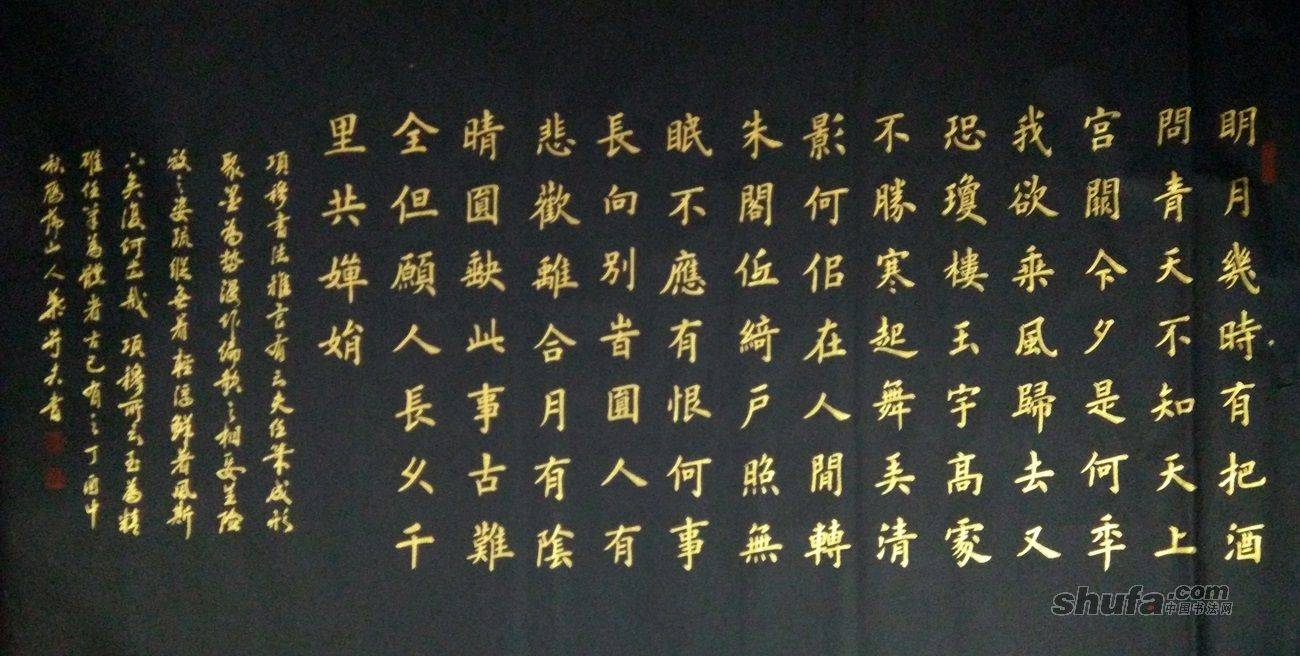 明月幾時有把酒
問青天不知天上
宫闕今夕是何秊
我欲乘風歸去又
恐瓊樓玉宇高處
不勝寒起舞弄清
影何佀在人間轉
朱閣低綺戶照無
眠不應有恨何事
長向別旹圓人有
悲歡離合月有陰
晴圓缺此事古難
全但願人長久千
里共嬋娟
項穆書法雅言有云夫任筆成形
聚墨為勢漫作偏欹之相妄呈險
放之姿疏縱無者輕浮鮮者風斯
下矣復何齒哉項穆所云玉為精
雖任筆為體者古已有之丁酉中
秋山人書
shufa.com
中国书法网